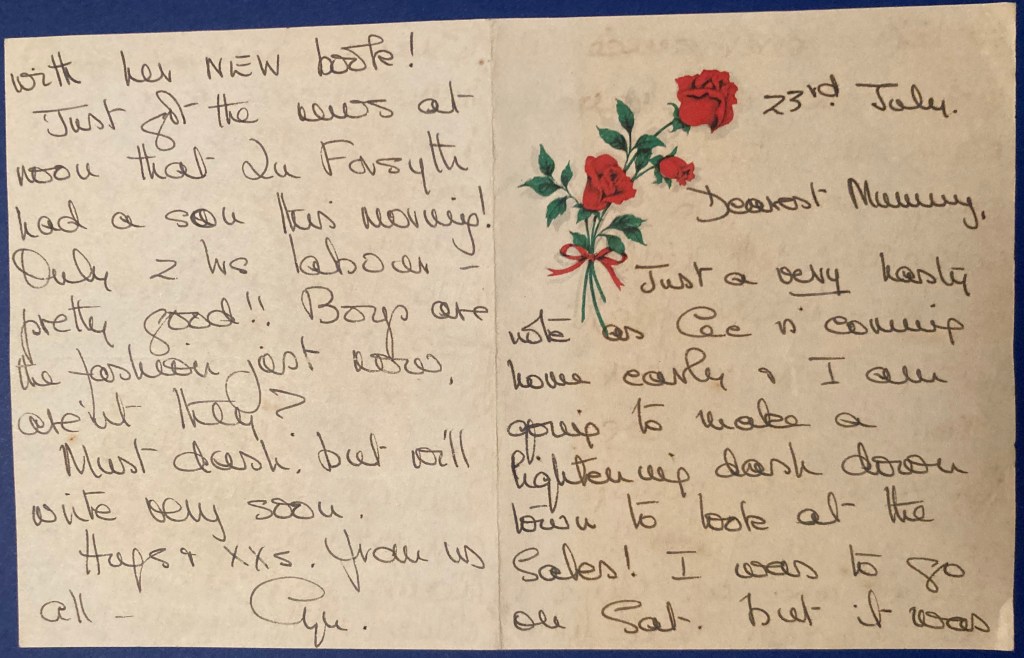 23rd July.
Dearest Mummy,
Just a very hasty
note as Cec is coming
home early & I am
going to make a
lightening dash down
town to look at the
Sales! I was to go
on Sat. but it was
with her NEW book!
Just got the news at
noon that Lu Forsyth
had a son this morning!
Only 2 hrs labour -
pretty good!! Boys are
the fashion just now,
are'nt they?
Must dash, but will
write very soon.
Hugs & xxs. from us
all - Cyn.